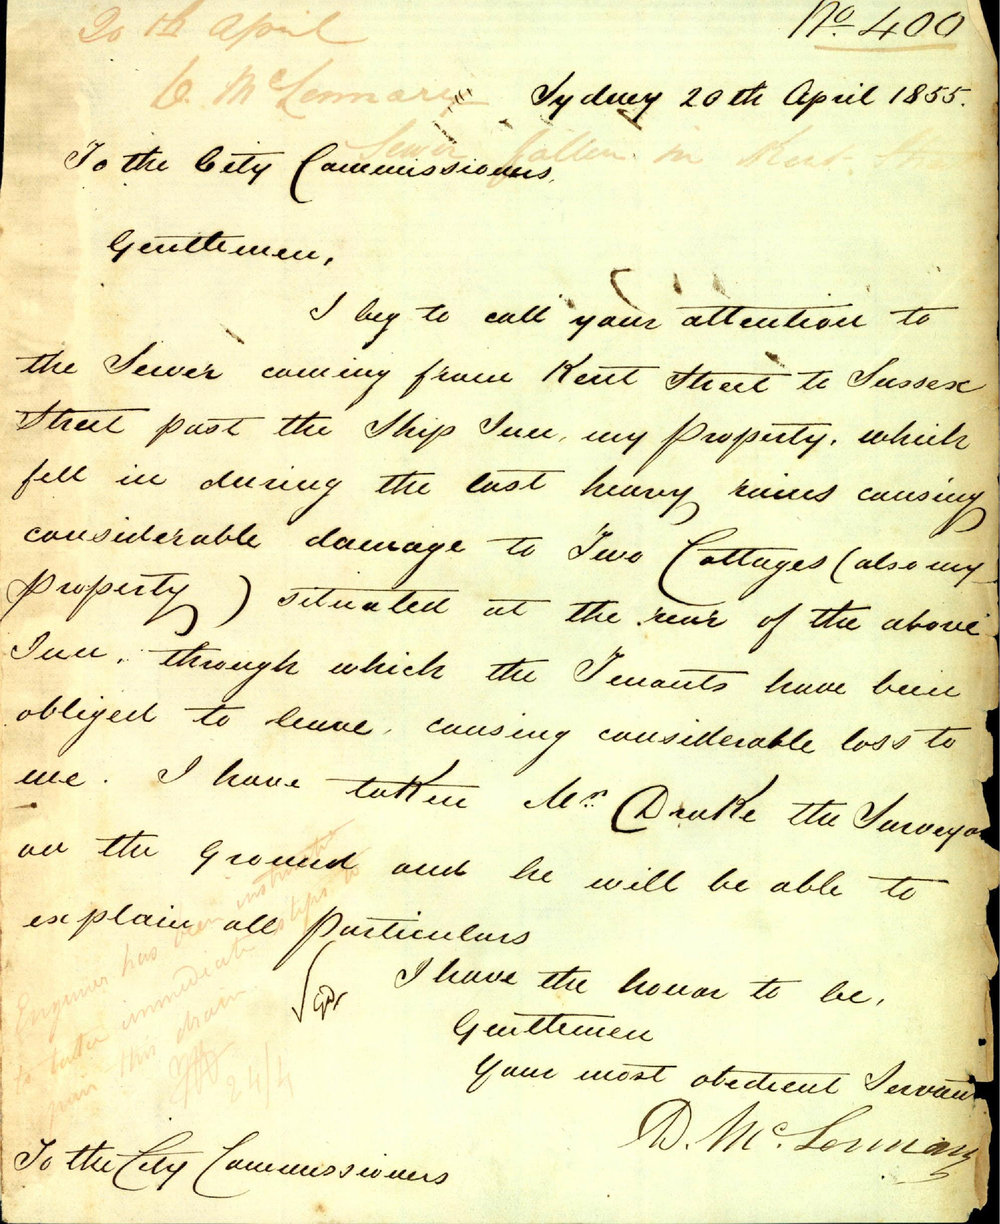 No. 400
20th April
D. McLennary
Sewer fallen in Kent Street
Sydney 20th April 1855.
To the City Commissioners,
Gentlemen,
I beg to call your attention to
the Sewer coming from Kent Street to Sussex
Street past the Ship Inn, my Property, which
fell in during the last heavy rains causing
considerable damage to Two Cottages (also my
Property) situated at the rear of the above
Inn, through which the Tenants have been
obliged to leave, causing considerable loss to
me. I have taken Mr. Drake the Surveyor
on the Ground and he will be able to
explain all Particulars
I have the honor to be,
Gentlemen
Your most obedient Servant
D. McLennary
Engineer has been instructed
to take immediate steps to
this drain
24/4
To the City Commissioners